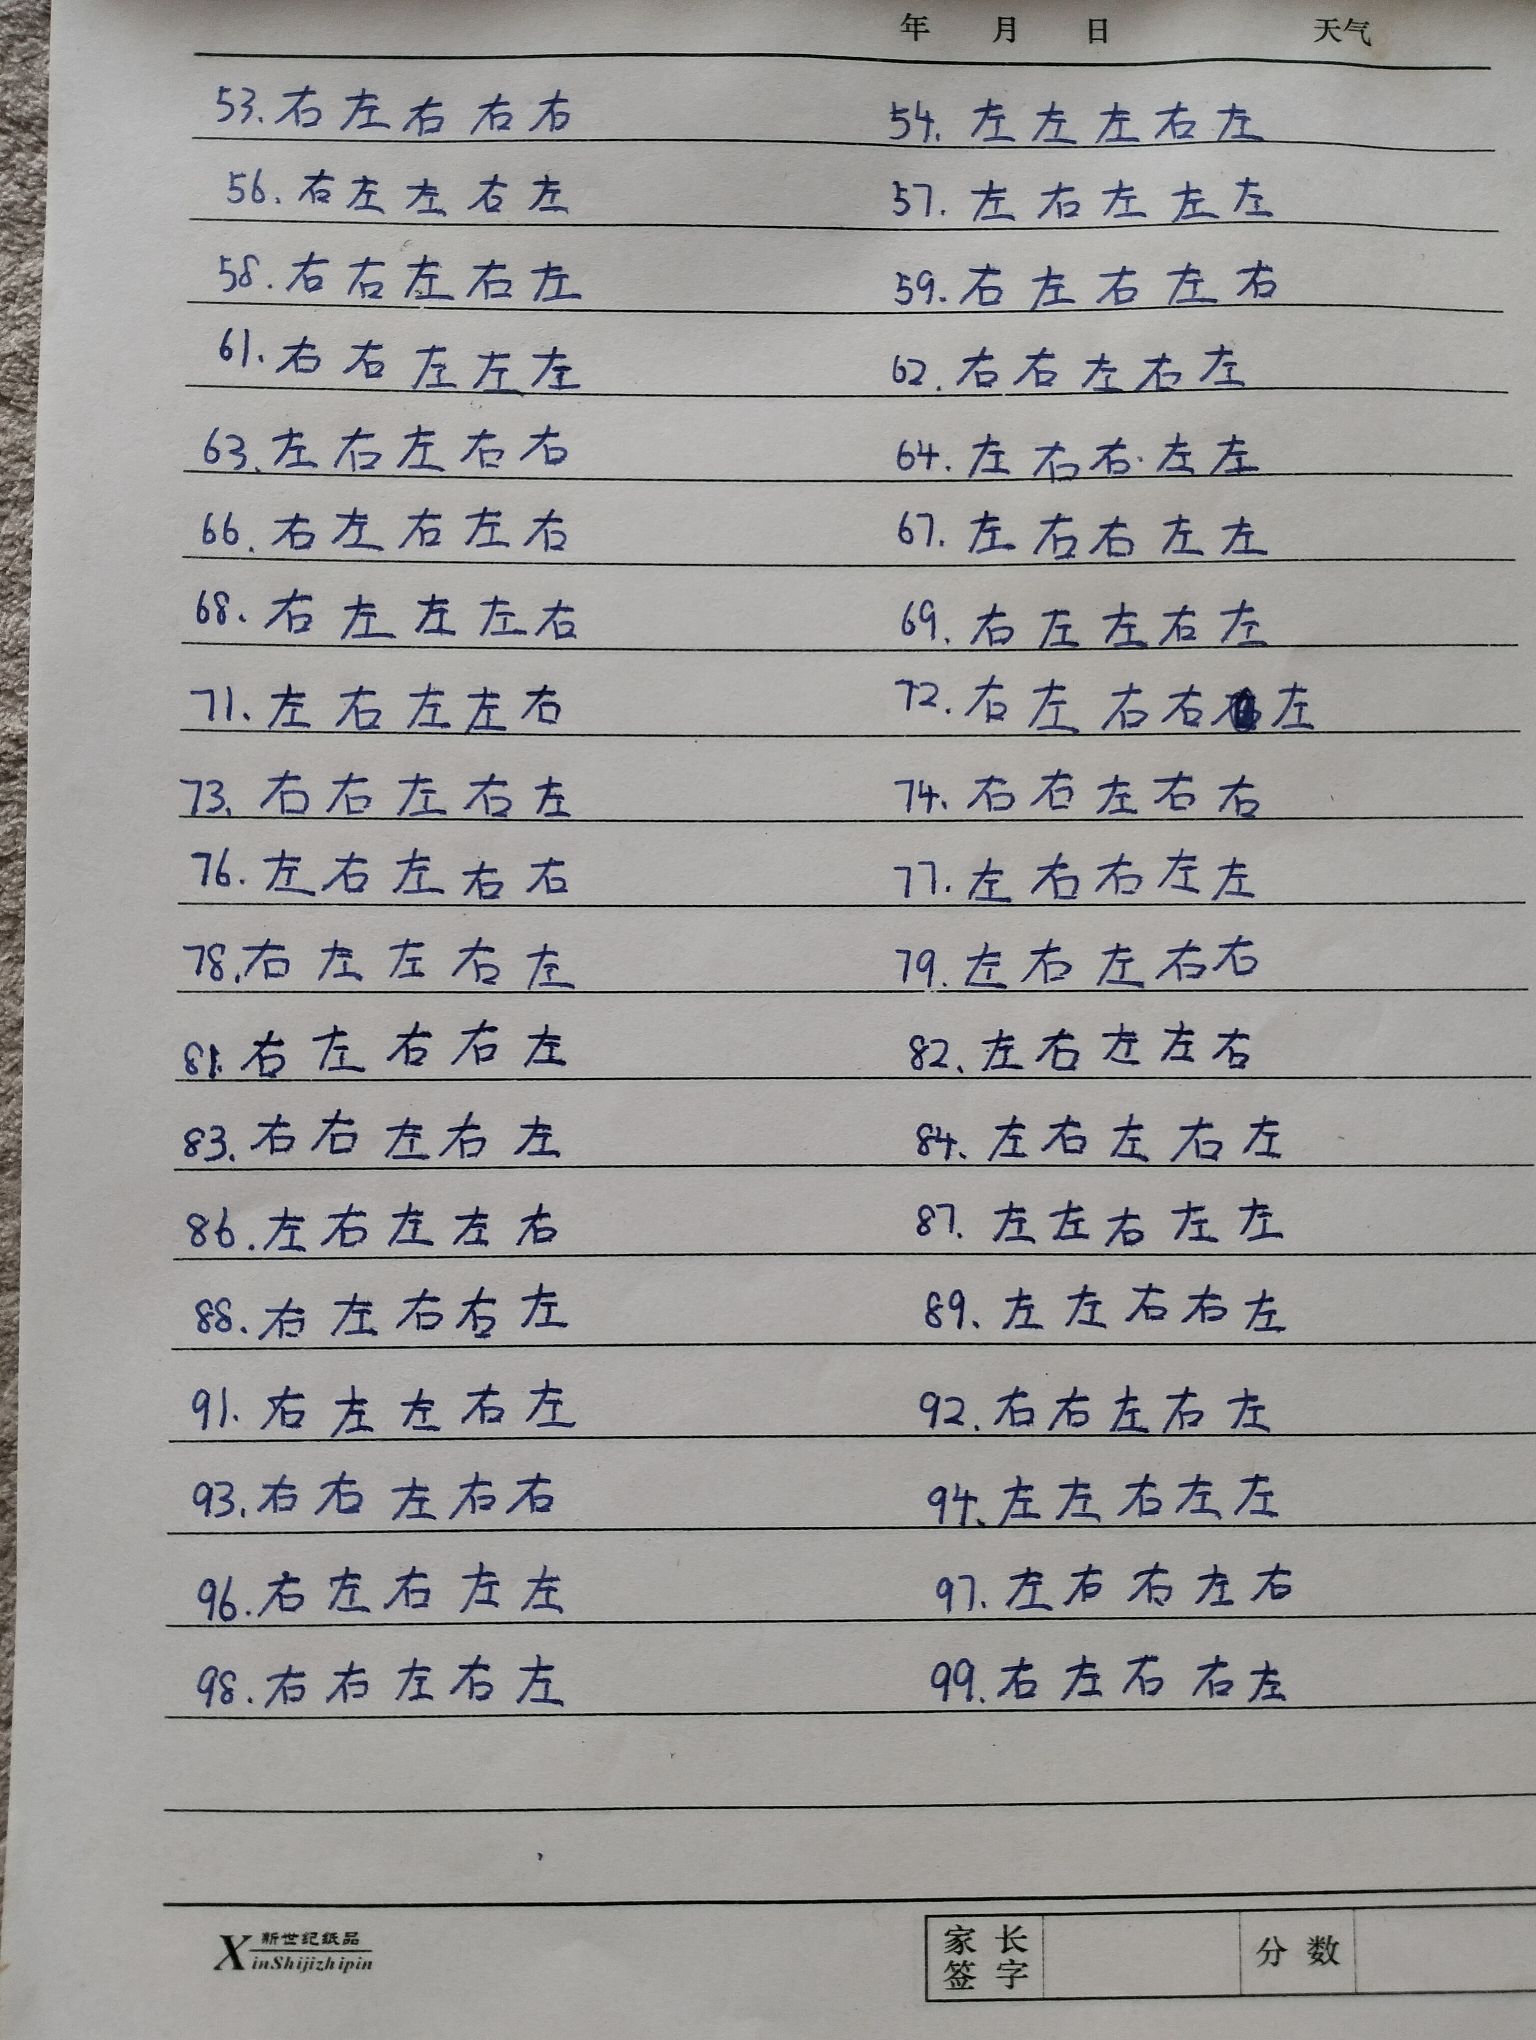 年 月 日 天气
53. 右 左 右 右 右 54. 左 左 左 右 左
56. 右 左 左 右 左 57. 左 右 左 左 左
58. 右 右 左 右 左 59. 右 左 右 左 右
61. 右 右 左 左 左 62. 右 右 左 右 左
63. 左 右 左 右 右 64. 左 右 右 左 左
66. 右 左 右 左 右 67. 左 右 右 左 左
68. 右 左 左 左 右 69. 右 左 左 右 左
71. 左 右 左 左 右 72. 右 左 右 右 左
73. 右 右 左 右 左 74. 右 右 左 右 右
76. 左 右 左 右 右 77. 左 右 右 左 左
78. 右 左 左 右 左 79. 左 右 左 右 右
81. 右 左 右 右 左 82. 左 右 左 左 右
83. 右 右 左 右 左 84. 左 右 左 右 左
86. 左 右 左 左 右 87. 左 左 右 左 左
88. 右 左 右 右 左 89. 左 左 右 右 左
91. 右 左 左 右 左 92. 右 右 左 右 左
93. 右 右 左 右 右 94. 左 左 右 左 左
96. 右 左 右 左 左 97. 左 右 右 左 右
98. 右 右 左 右 左 99. 右 左 右 右 左
新世纪纸品
XinShijizhipin
家长签字 分数